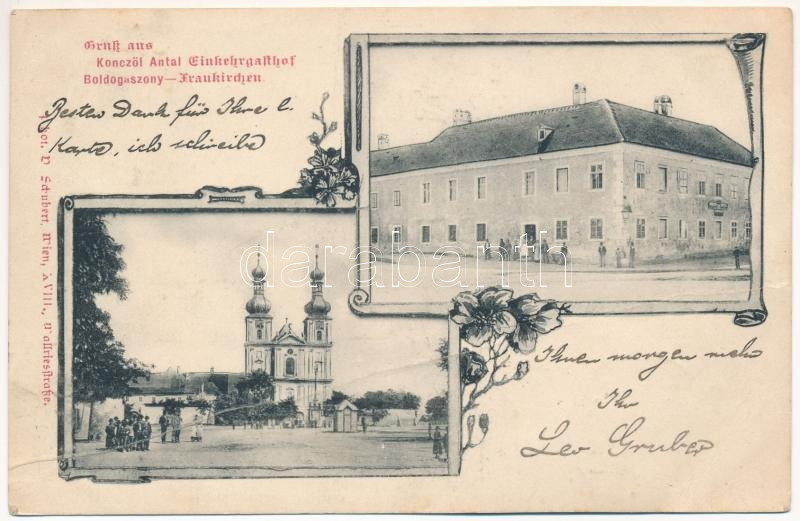 Gruß aus
Konczól Antal Einkehrgasthof
Boldogaszony—Fraukirchen.
Besten Dank für Ihre l.
Karte, ich schreibe
Ihnen morgen mehr
Ihr
Leo Gruber
Phot. D. Schubert, Wien, XVIII., Wallrießstraße.
darabanth